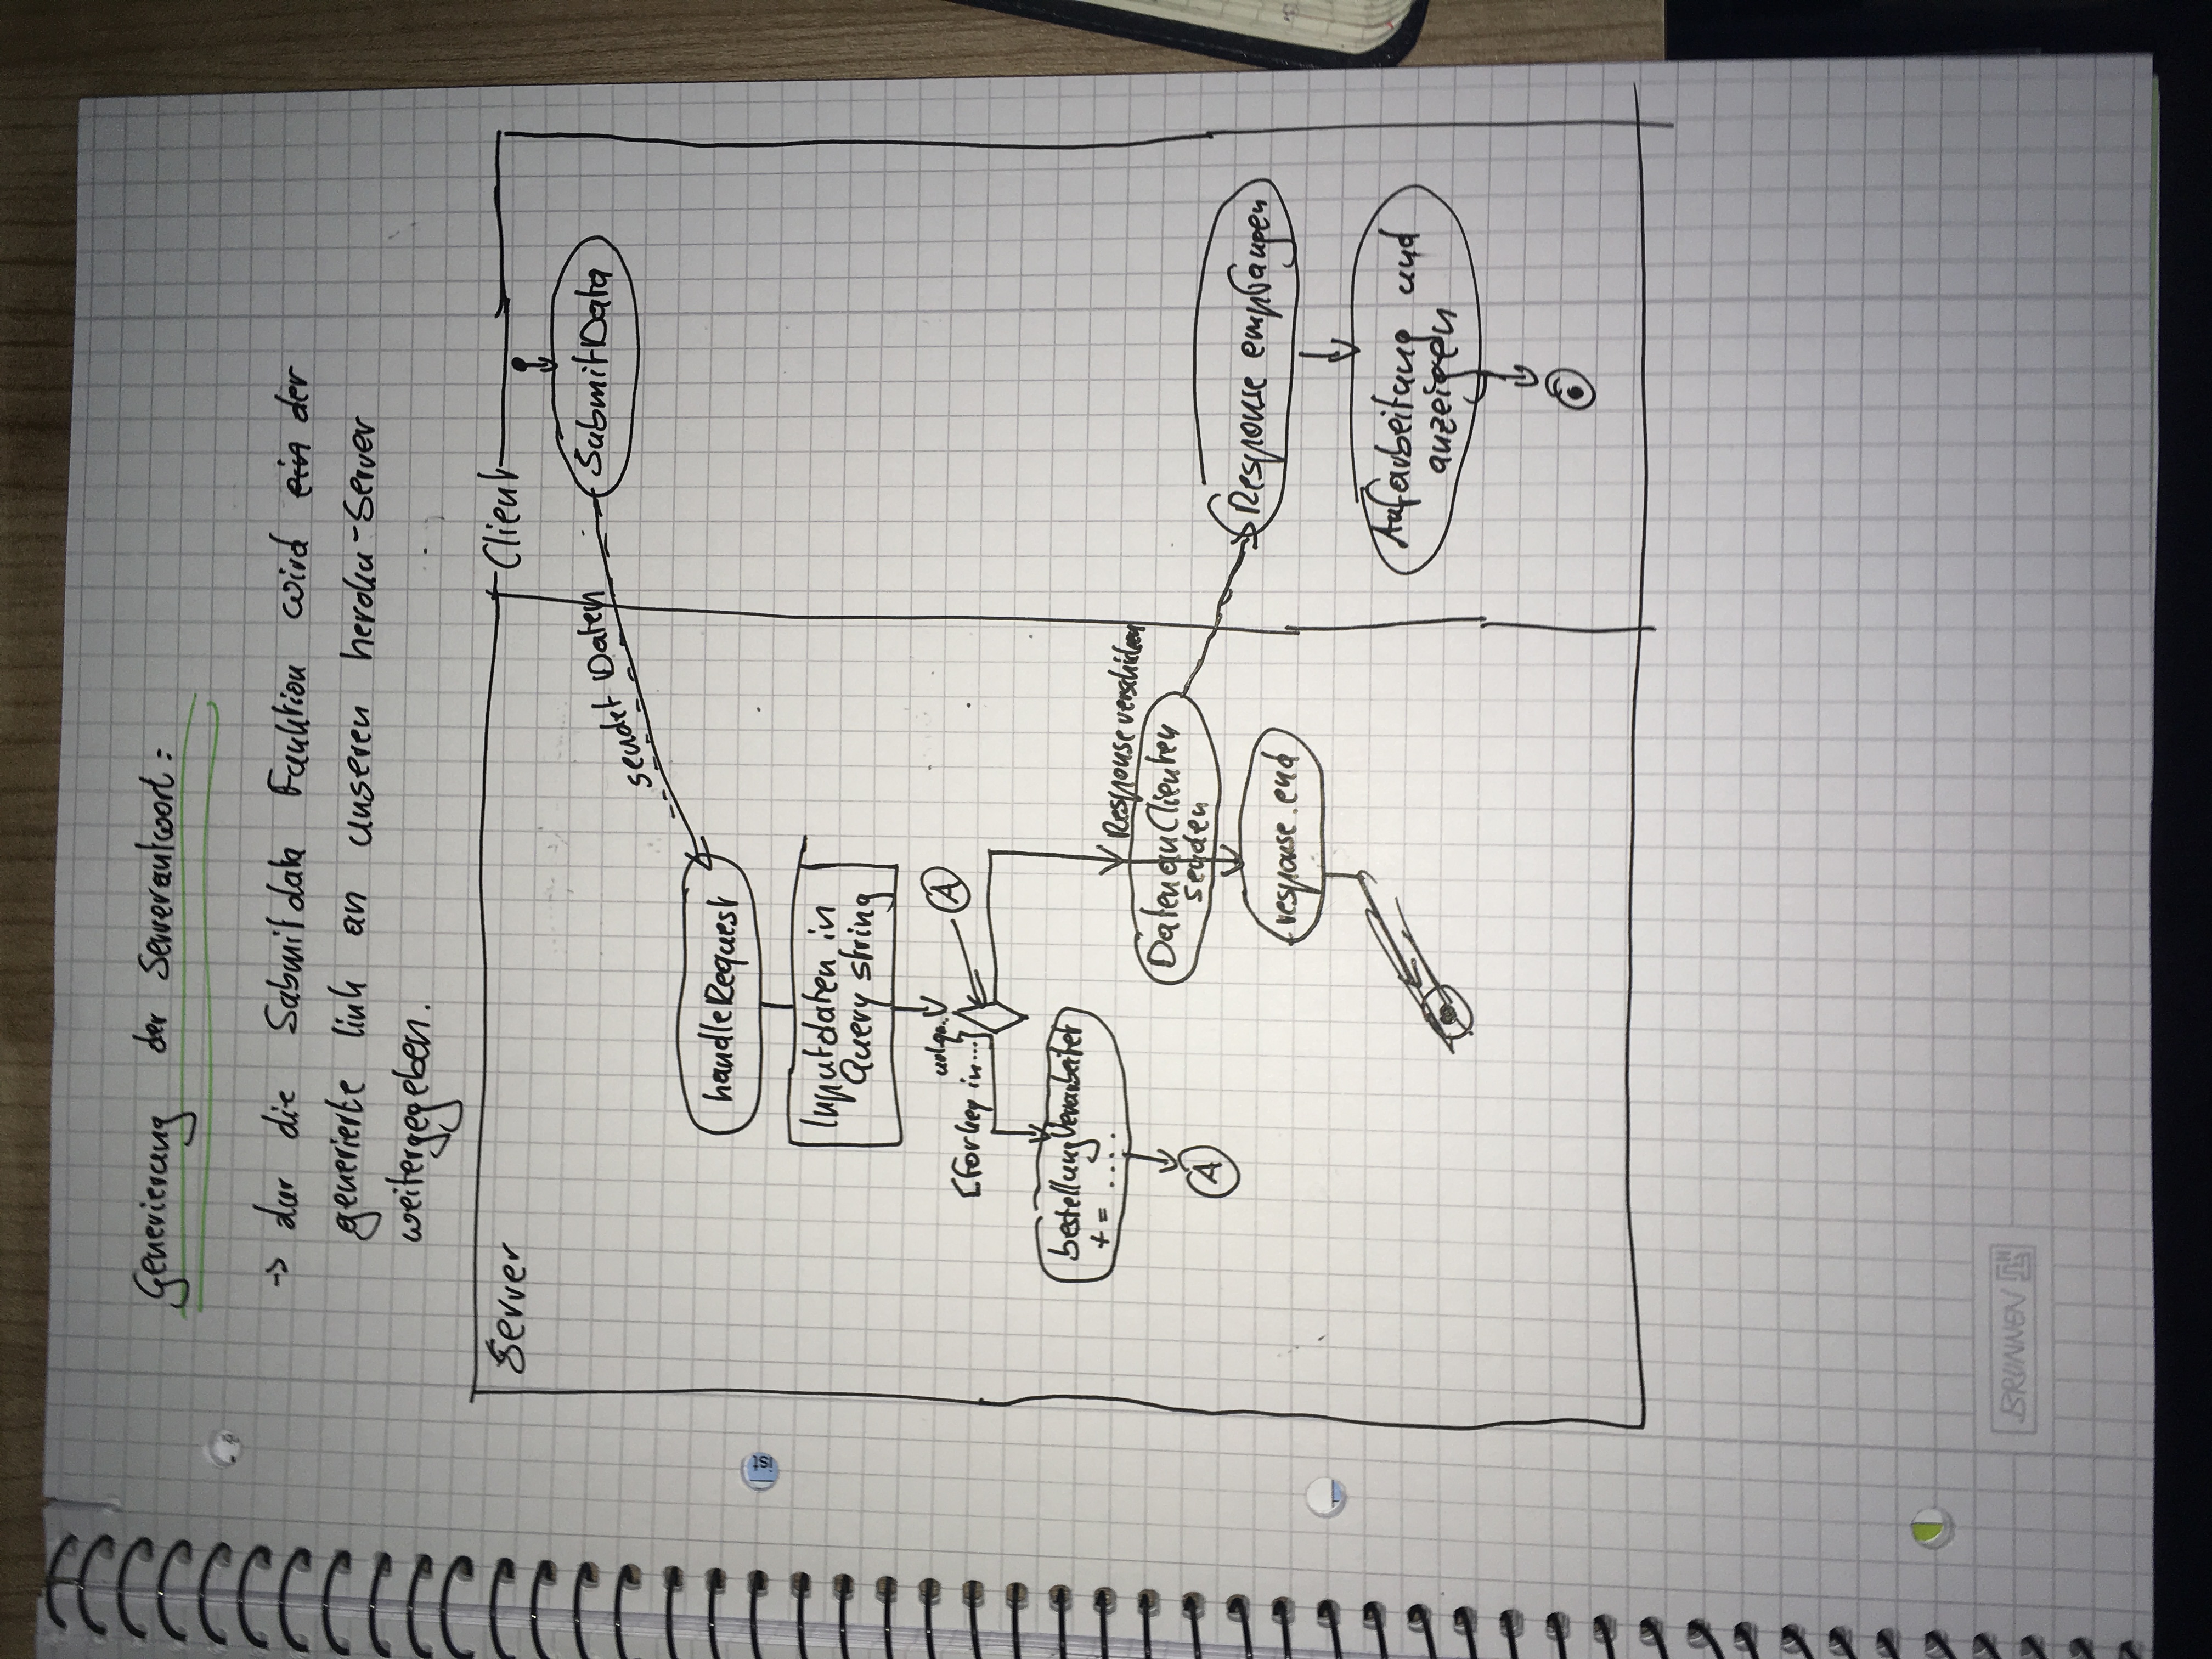 Generierung der Serverantwort:
-> dur die Submitdata Funktion wird ein der
generierte link an unseren heroku-Server
weitergegeben.
Server
Client
SubmitData
sendet Daten
handleRequest
Inputdaten in
Query string
A
[for key in...]
bestellungVerarbeitet
+= ....
A
Response verschicken
Daten an Clienten
senden
Response empfangen
response.end
Aufarbeitung und
anzeigen
BRUNNEN
ist